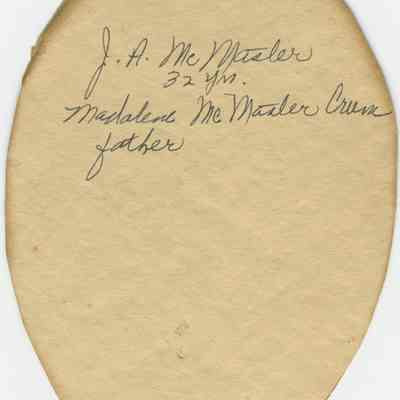 J. A. McMaster
32 yrs.
Madalene McMaster Crum
father